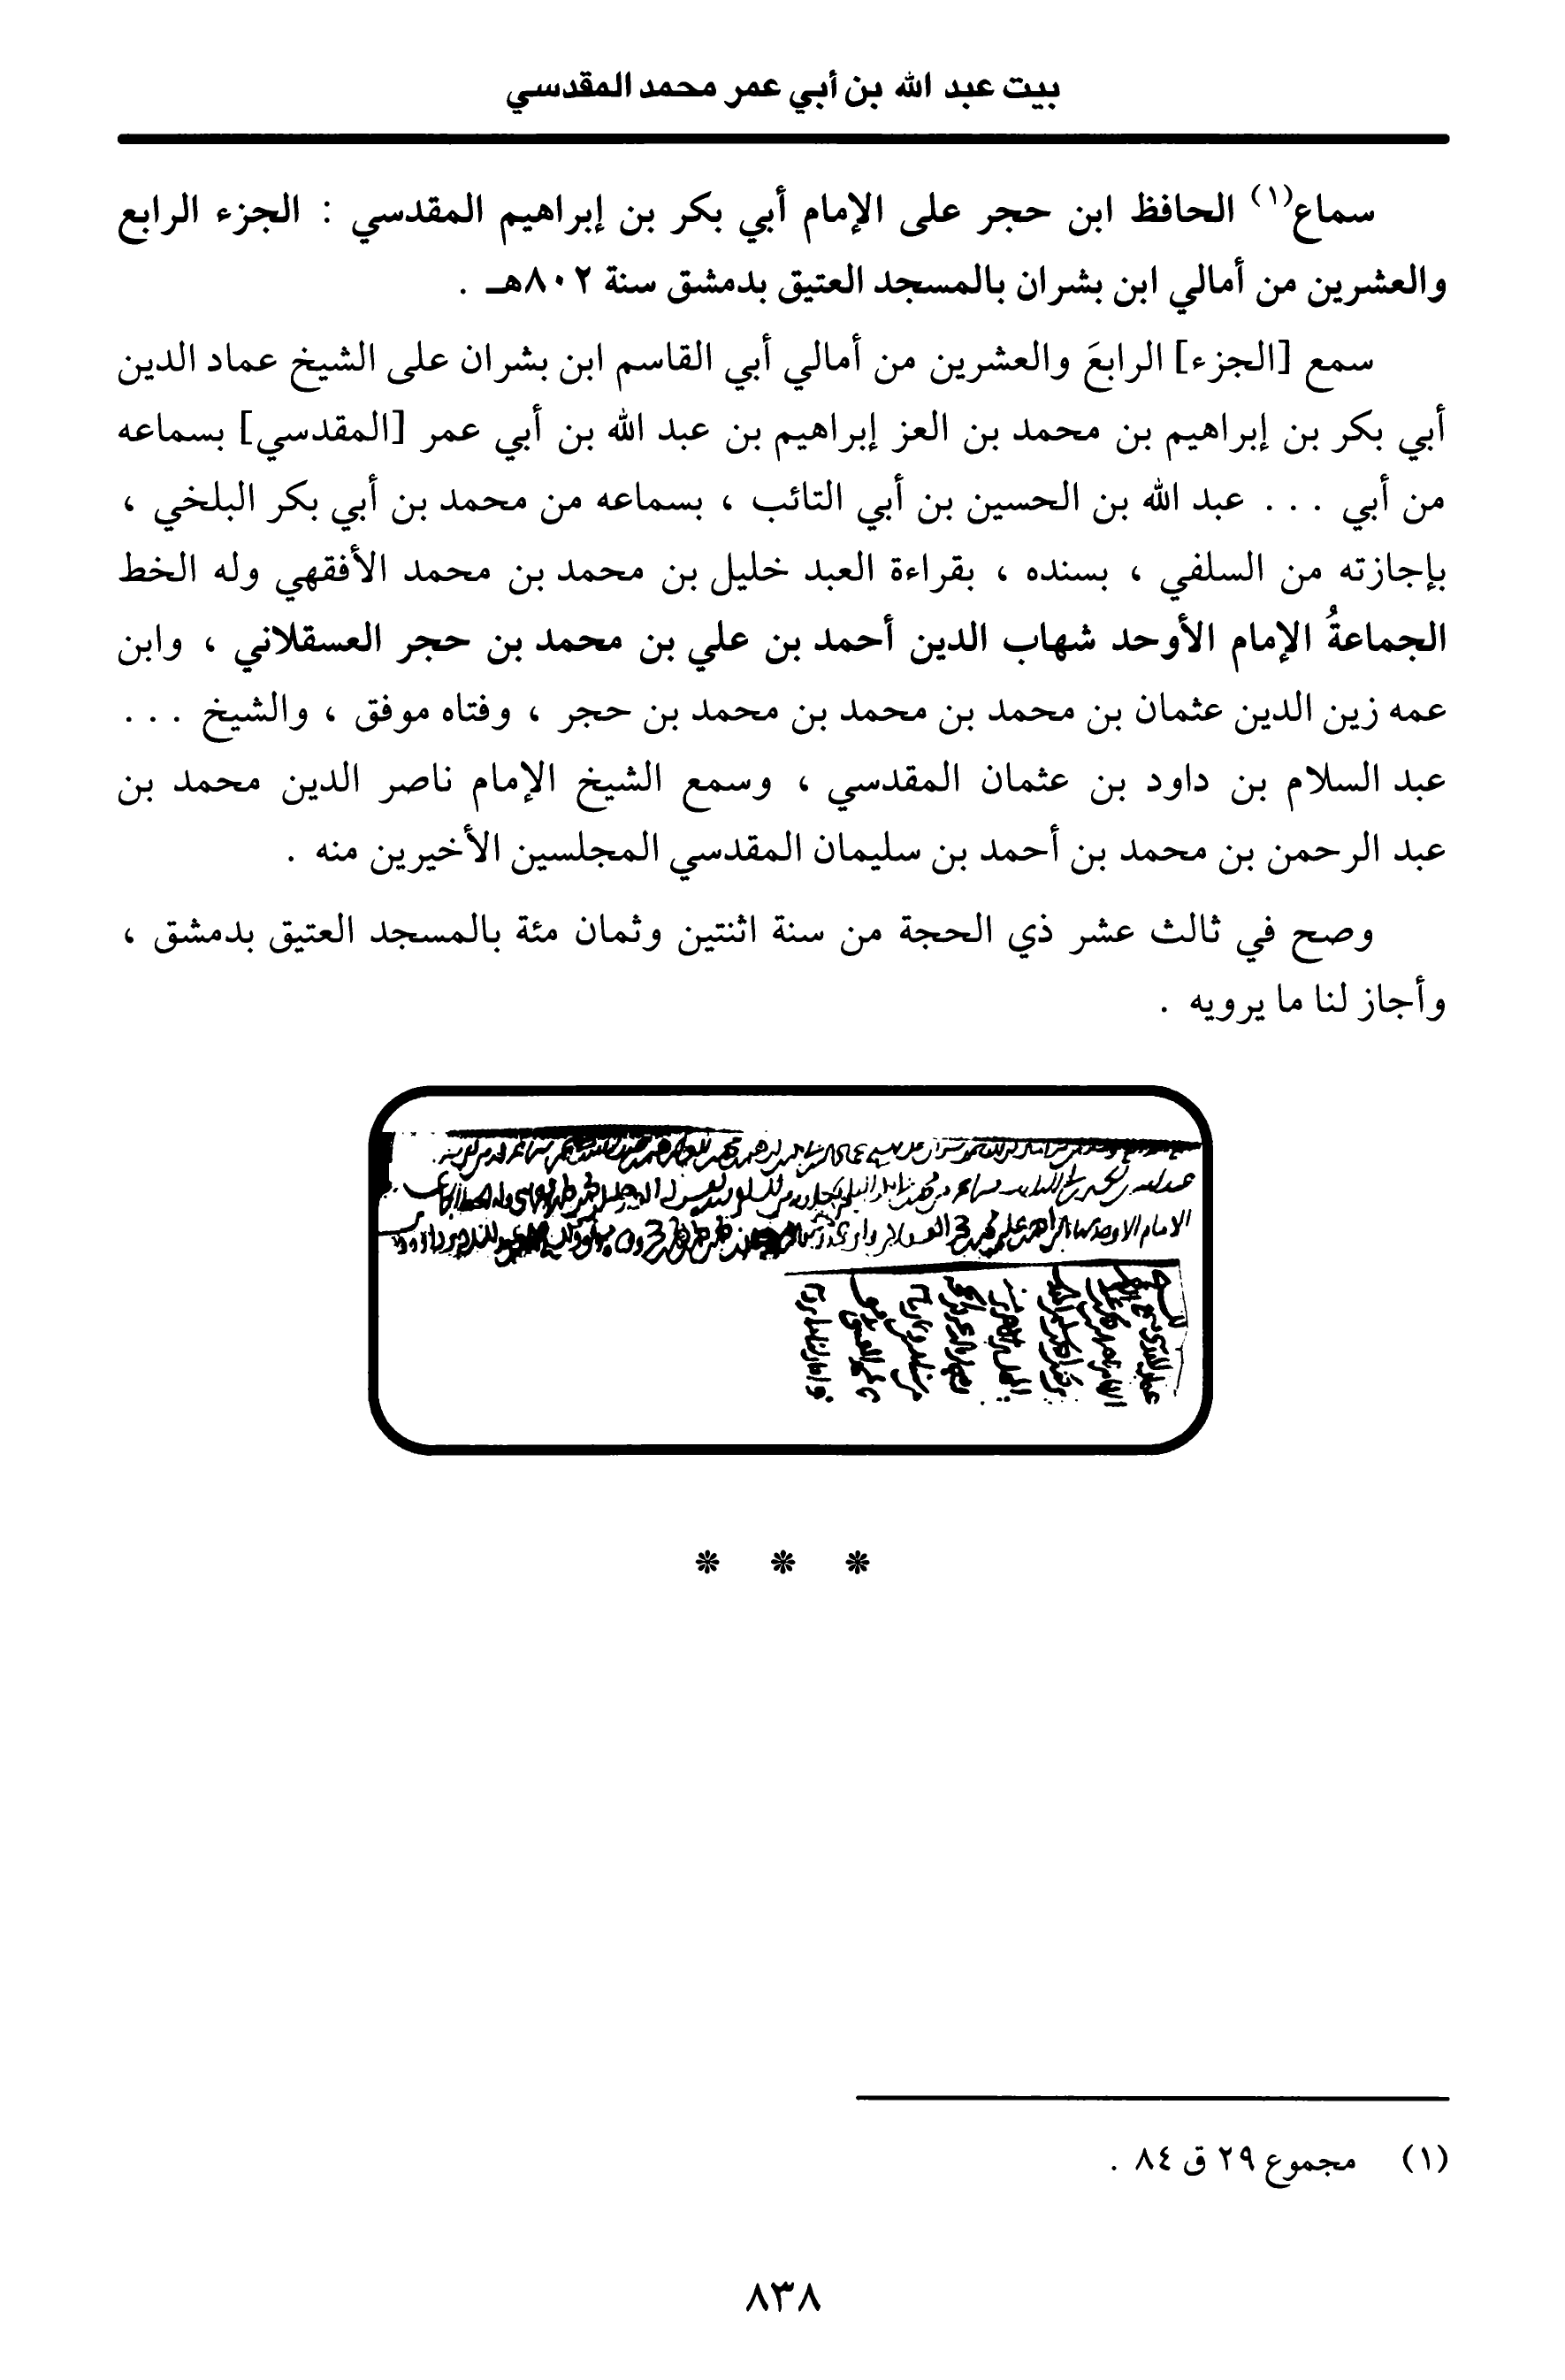 بيت عبد الله بن أبي عمر محمد المقدسي
سماع(١) الحافظ ابن حجر على الإمام أبي بكر بن إبراهيم المقدسي : الجزء الرابع
والعشرين من أمالي ابن بشران بالمسجد العتيق بدمشق سنة ٨٠٢هـ .
سمع [الجزء] الرابعَ والعشرين من أمالي أبي القاسم ابن بشران على الشيخ عماد الدين
أبي بكر بن إبراهيم بن محمد بن العز إبراهيم بن عبد الله بن أبي عمر [المقدسي] بسماعه
من أبي . . . عبد الله بن الحسين بن أبي التائب ، بسماعه من محمد بن أبي بكر البلخي ،
بإجازته من السلفي ، بسنده ، بقراءة العبد خليل بن محمد بن محمد الأفقهي وله الخط
الجماعةُ الإمام الأوحد شهاب الدين أحمد بن علي بن محمد بن حجر العسقلاني ، وابن
عمه زين الدين عثمان بن محمد بن محمد بن محمد بن حجر ، وفتاه موفق ، والشيخ . . .
عبد السلام بن داود بن عثمان المقدسي ، وسمع الشيخ الإمام ناصر الدين محمد بن
عبد الرحمن بن محمد بن أحمد بن سليمان المقدسي المجلسين الأخيرين منه .
وصح في ثالث عشر ذي الحجة من سنة اثنتين وثمان مئة بالمسجد العتيق بدمشق ،
وأجاز لنا ما يرويه .
* * *
(١) مجموع ٢٩ ق ٨٤ .
٨٣٨